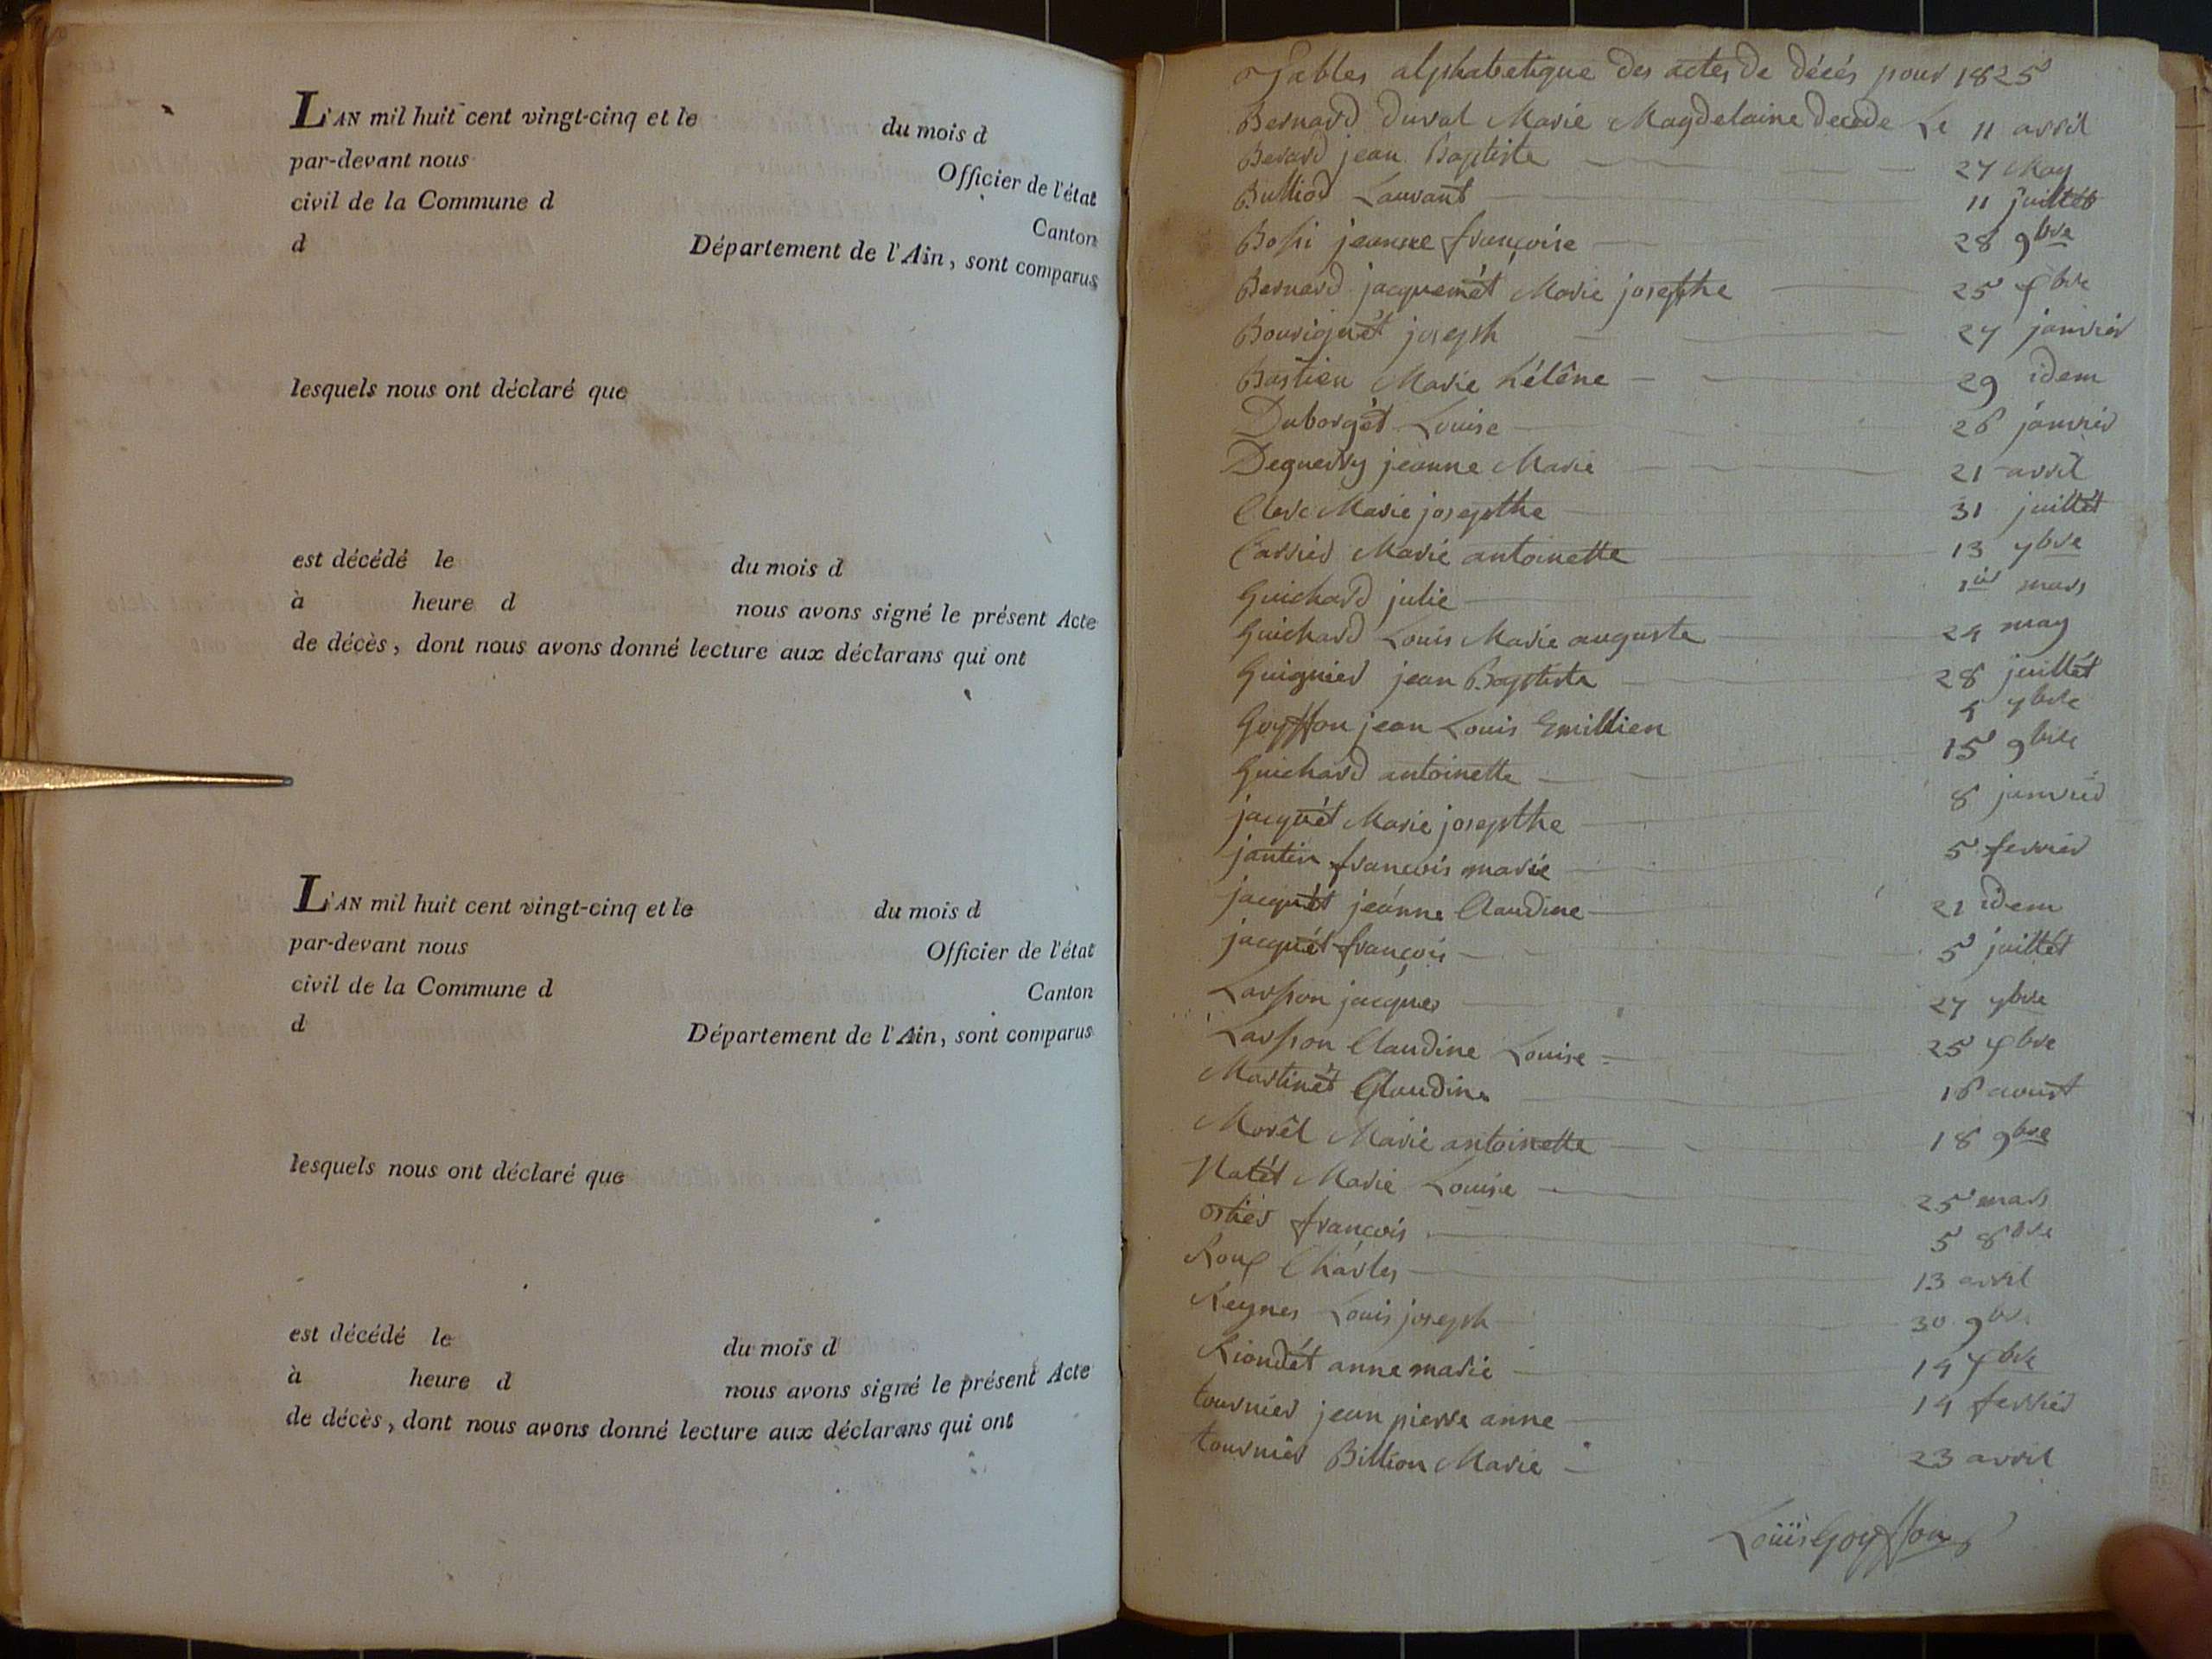 L'AN mil huit cent vingt-cinq et le du mois d
par-devant nous Officier de l'état
civil de la Commune d Canton
d Département de l'Ain, sont comparus
lesquels nous ont déclaré que
est décédé le du mois d
à heure d nous avons signé le présent Acte
de décès, dont nous avons donné lecture aux déclarans qui ont
L'AN mil huit cent vingt-cinq et le du mois d
par-devant nous Officier de l'état
civil de la Commune d Canton
d Département de l'Ain, sont comparus
lesquels nous ont déclaré que
est décédé le du mois d
à heure d nous avons signé le présent Acte
de décès, dont nous avons donné lecture aux déclarans qui ont
Tables alphabetique des actes de décés pour 1825
Bernard Duval Marie Magdelaine decede Le 11 avril
Berard jean Baptiste 27 May
Bulliod Laurant 11 juillet
Bossi jeanne françoise 28 9bre
Bernard jacquemét Marie josephte 25 Xbre
Bourignét joseph 27 janvier
Bastien Marie héléne 29 idem
Duborgét Louise 26 janvier
Deguerry jeanne Marie 21 avril
Clerc Marie josephte 31 juillét
Carrier Marie antoinette 13 7bre
Guichard julie 1er mars
Guichard Louis Marie auguste 24 may
Guignier jean Baptiste 28 juillét
Goyffon jean Louis Emillien 4 7bre
Guichard antoinette 15 9bre
jacquét Marie josephte 8 janvier
jantin francois marie 5 fevrier
jacquét jeanne Claudine 21 idem
jacquét françois 5 juillét
Lasson jacques 27 7bre
Lasson Claudine Louise 25 Xbre
Martinét Claudine 16 aoust
Morél Marie antoinette 18 9bre
Natét Marie Louise 25 mars
ortier françois 5 8bre
Roux Charles 13 avril
Reynes Louis joseph 30 9bre
Riondét anne marie 14 Xbre
tournier jean pierre anne 14 fevrier
tournier Billion Marie 23 avril
Louis Goyffon